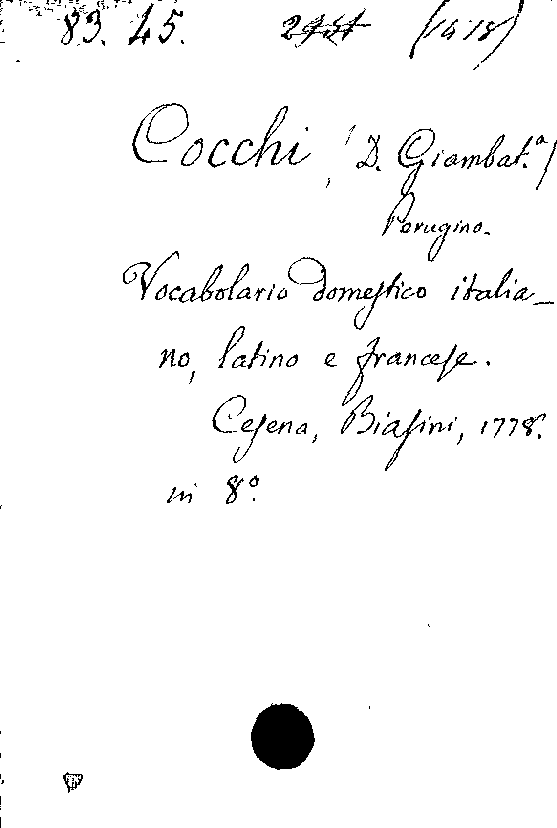 83. 45. (1478)
Cocchi, (D. Giambat.ª)
Perugino.
Vocabolario domeſtico italia_
no, latino e franceſe.
Ceſena, Biaſini, 1778.
in 8º.